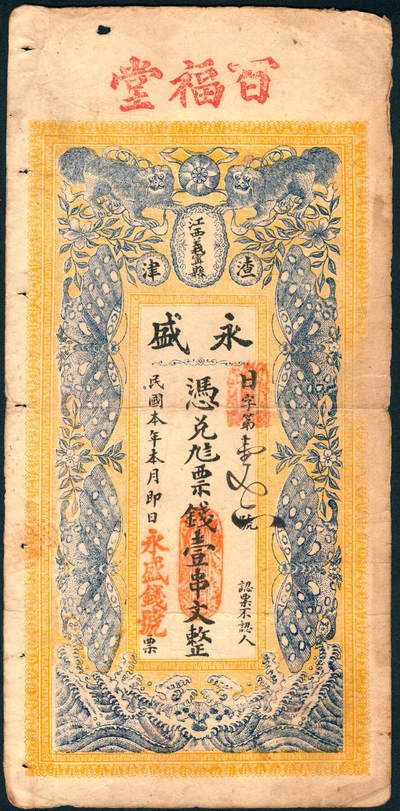 百福堂
江西義寧縣
渣津
永盛
日字第
號
憑兌尨票錢壹串文整
認票不認人
民國本年本月即日
永盛錢號
票